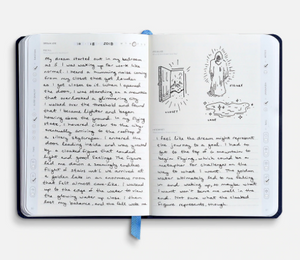 My dream started out in my bedroom
as if I was waking up for work like
normal. I heard a humming noise coming
from my closet that got louder
as I got closer to it. When I opened
the door, I was standing on a mountain
that overlooked a glimmering city.
I walked over the threshold and found
that I became lighter and began
hovering over the ground. In my flying
state, I hovered closer to the city
eventually arriving to the rooftop of
a silvery skyscraper. I entered the
door leading inside and was greeted
by a cloaked figure that exuded
light and good feelings. The figure
led me down a seemingly endless
flight of stairs until we arrived at
a golden lake in an enormous room
that felt almost cave-like. I walked
up to the edge of the water to view
the glowing water up close. I then
lost my balance and fell into
CLOSET
FIGURE
LAKE
I feel like the dream might represent
the journey to a goal. I had to
get to the top of a mountain to
begin flying, which could be a
metaphor for challenges on the
way to what I want. The golden
water ultimately led to me falling
in and waking up, so maybe what
I want won't serve me well in the
end. Not sure what the cloaked
figure represents, though.